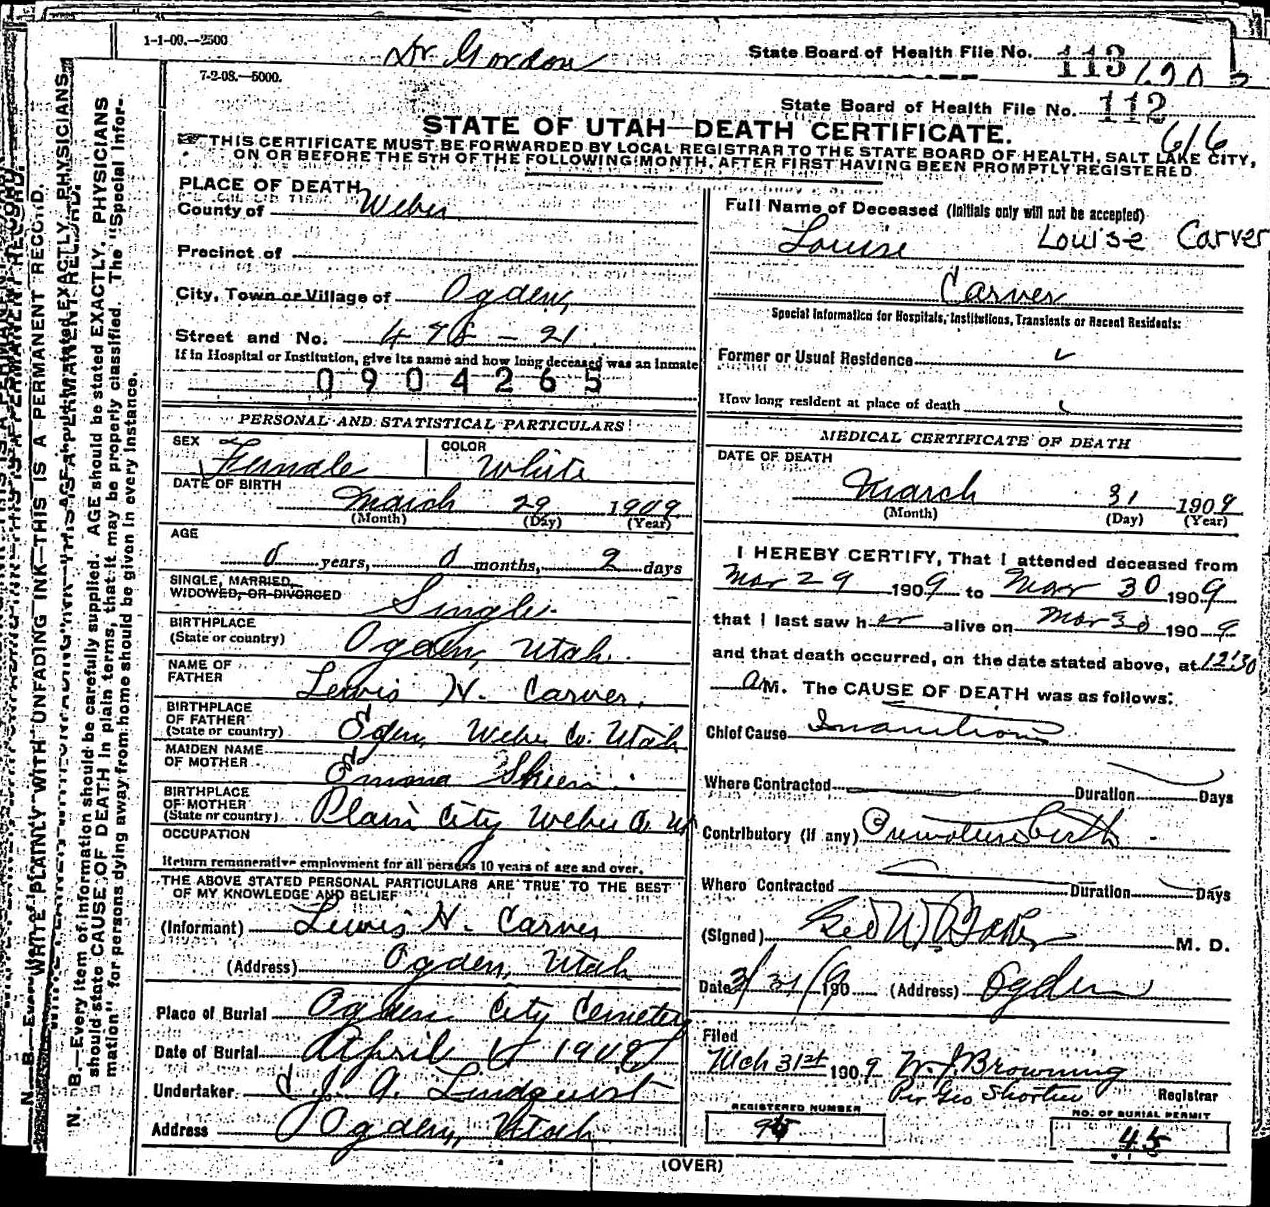 1-1-00.—2500
Dr. Gordon
State Board of Health File No. 113
7-2-08.—5000.
State Board of Health File No. 112
616
STATE OF UTAH—DEATH CERTIFICATE.
THIS CERTIFICATE MUST BE FORWARDED BY LOCAL REGISTRAR TO THE STATE BOARD OF HEALTH, SALT LAKE CITY,
ON OR BEFORE THE 5TH OF THE FOLLOWING MONTH, AFTER FIRST HAVING BEEN PROMPTLY REGISTERED.
N. B.—Every item of information should be carefully supplied. AGE should be stated EXACTLY. PHYSICIANS
should state CAUSE OF DEATH in plain terms, that it may be properly classified. The "Special Infor-
mation" for persons dying away from home should be given in every instance.
WRITE PLAINLY WITH UNFADING INK—THIS IS A PERMANENT RECORD.
PLACE OF DEATH
County of Weber
Precinct of
City, Town or Village of Ogden,
Street and No. 478 - 21
If in Hospital or Institution, give its name and how long deceased was an inmate
0904265
PERSONAL AND STATISTICAL PARTICULARS
SEX Female COLOR White
DATE OF BIRTH
March 29 1909
(Month) (Day) (Year)
AGE
0 years, 0 months, 2 days
SINGLE, MARRIED,
WIDOWED, OR DIVORCED Single
BIRTHPLACE
(State or country) Ogden, Utah.
NAME OF
FATHER Lewis H. Carver,
BIRTHPLACE
OF FATHER
(State or country) Eden, Weber Co. Utah
MAIDEN NAME
OF MOTHER Emma Skeen
BIRTHPLACE
OF MOTHER
(State or country) Plain City Weber Co. Ut
OCCUPATION
Return remunerative employment for all persons 10 years of age and over.
THE ABOVE STATED PERSONAL PARTICULARS ARE TRUE TO THE BEST
OF MY KNOWLEDGE AND BELIEF
(Informant) Lewis H. Carver
(Address) Ogden, Utah
Place of Burial Ogden City Cemetery
Date of Burial April 1 1909
Undertaker C. J. A. Lindquist
Address Ogden, Utah
Full Name of Deceased (Initials only will not be accepted)
Louise Louise Carver
Carver
Special Information for Hospitals, Institutions, Transients or Recent Residents:
Former or Usual Residence
How long resident at place of death
MEDICAL CERTIFICATE OF DEATH
DATE OF DEATH
March 31 1909
(Month) (Day) (Year)
I HEREBY CERTIFY, That I attended deceased from
Mar 29 1909 to Mar 30 1909
that I last saw her alive on Mar 30 1909
and that death occurred, on the date stated above, at 12:30
a M. The CAUSE OF DEATH was as follows:
Chief Cause Inanition
Where Contracted Duration Days
Contributory (if any) Premature birth
Where Contracted Duration Days
(Signed) Geo W. Baker M. D.
Date 3/31/9 190 (Address) Ogden
Filed
Mch 31st 1909 W. J. Browning
Per Geo Shorten Registrar
REGISTERED NUMBER
95
NO. OF BURIAL PERMIT
45
(OVER)